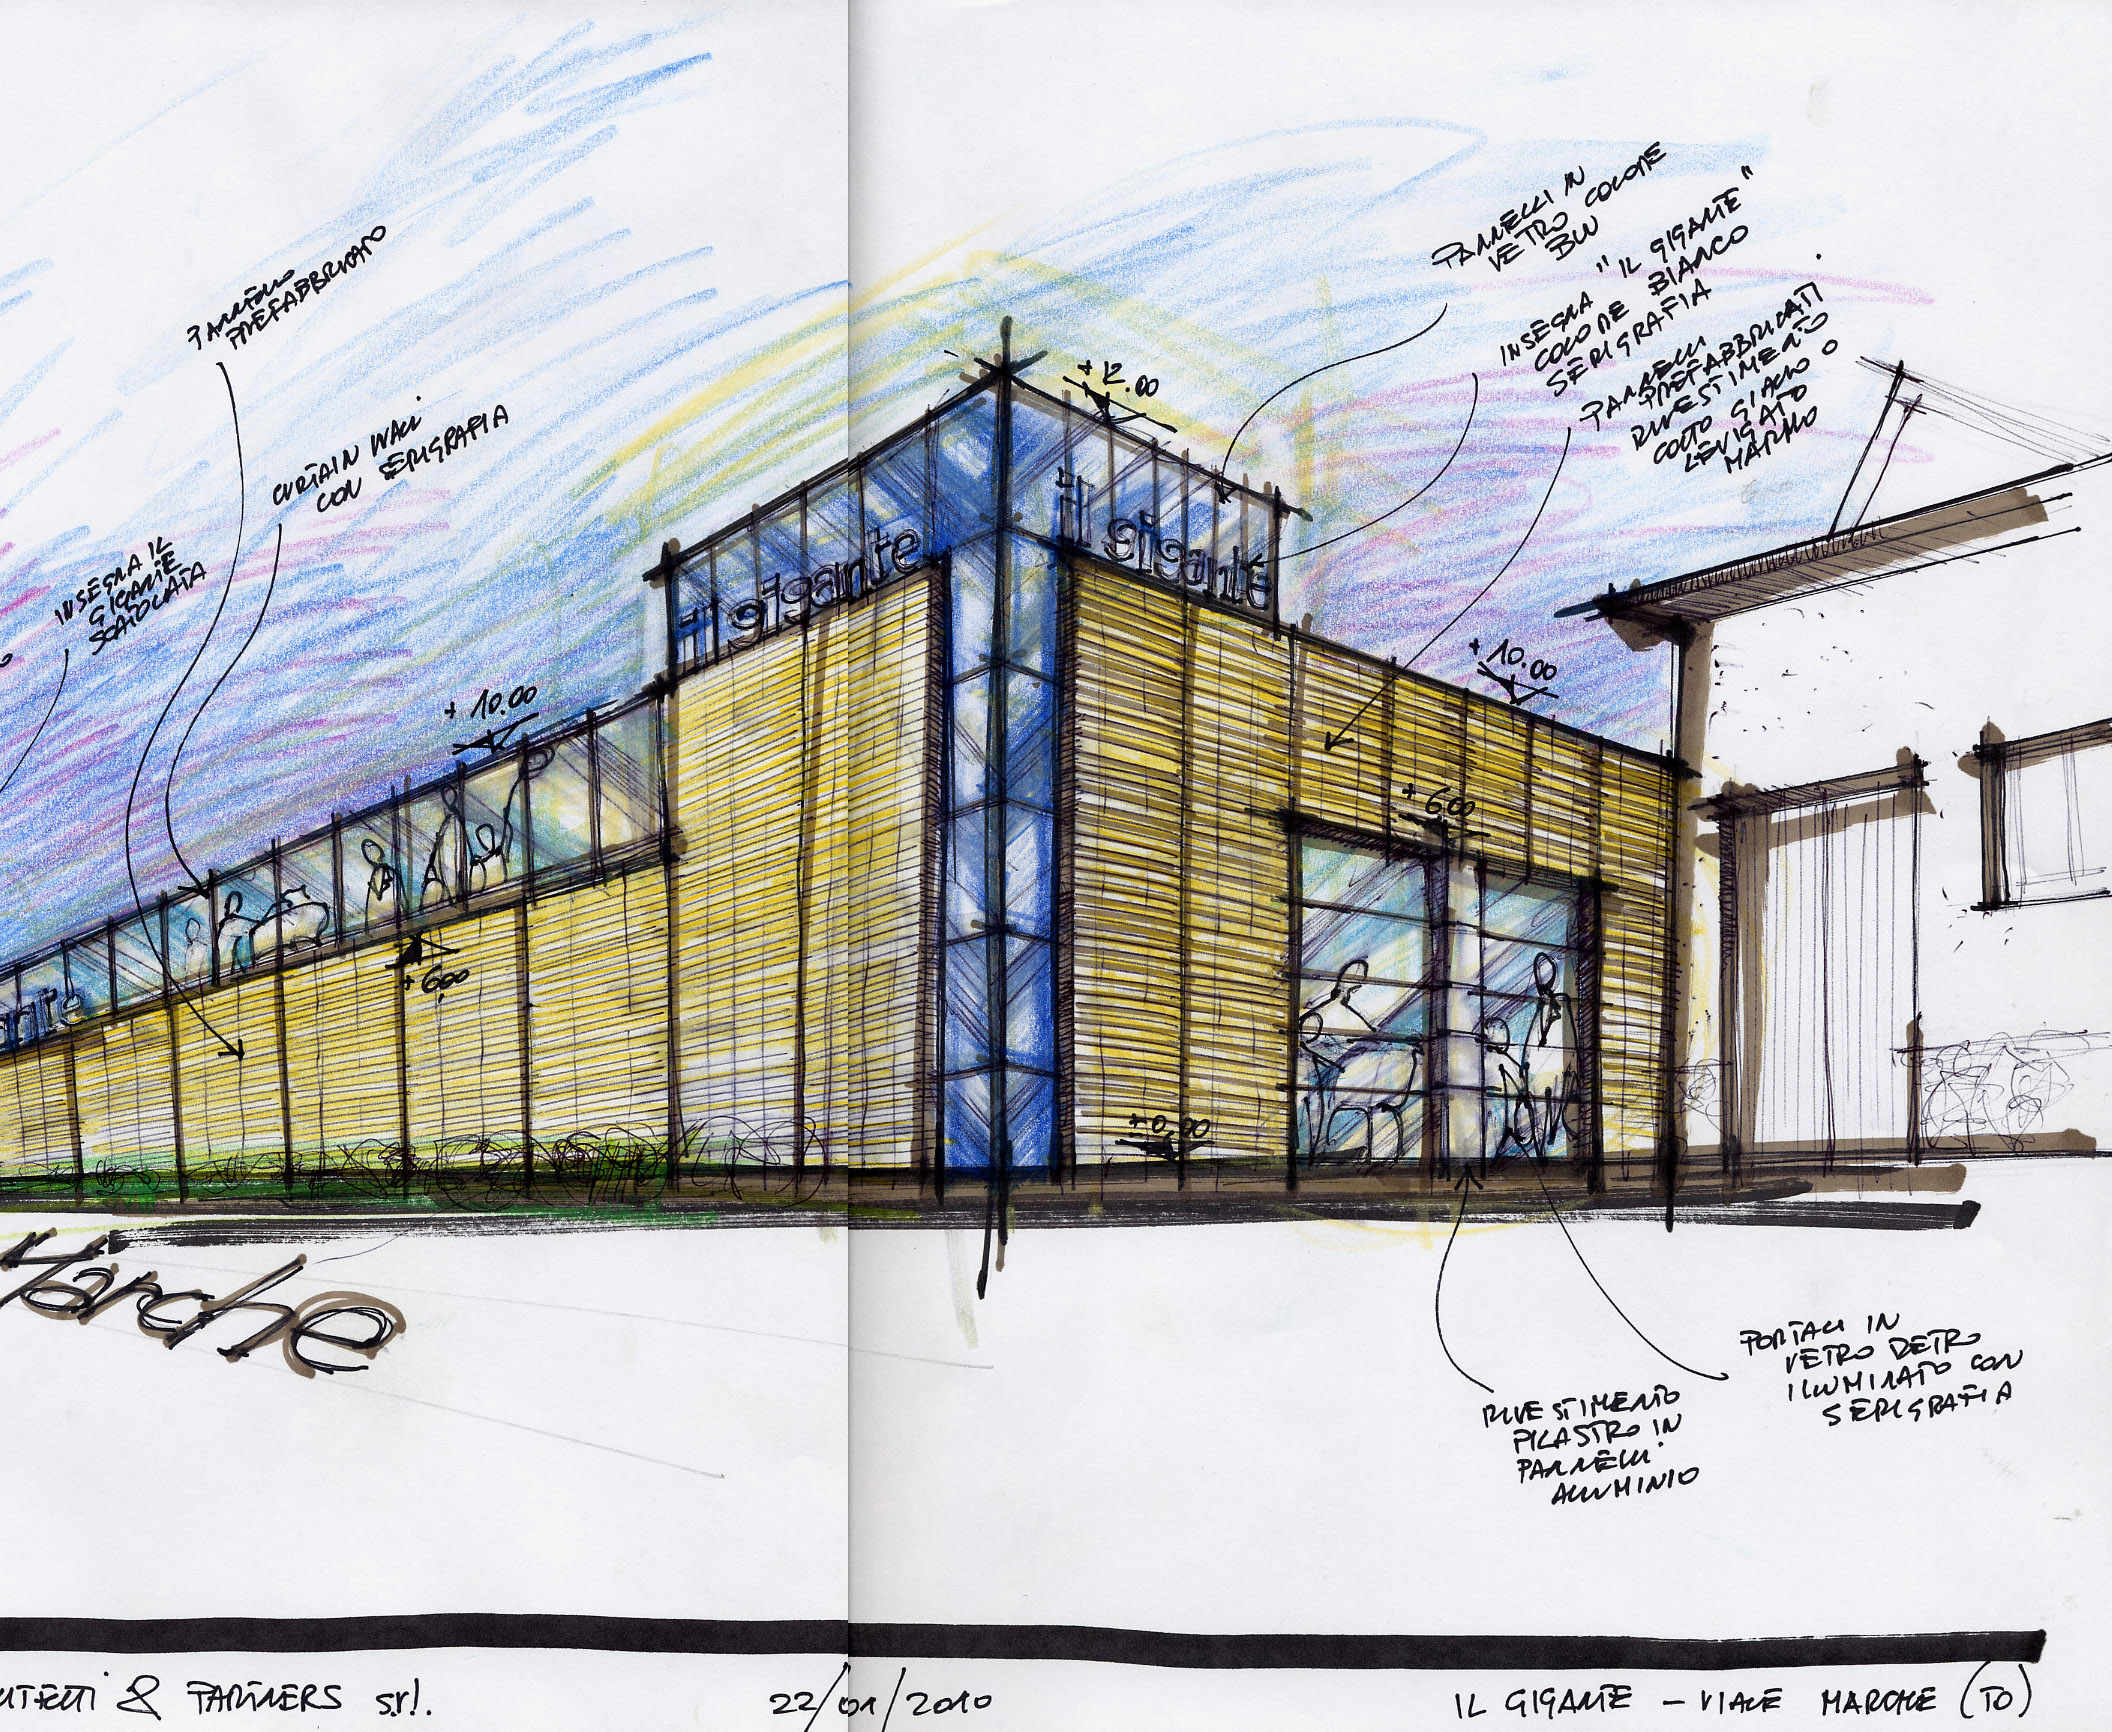 PANNELLO
PREFABBRICATO
CURTAIN WALL
CON SERIGRAFIA
INSEGNA IL
GIGANTE
SCATOLATA
PANNELLI IN
VETRO COLORE
BLU
INSEGNA "IL GIGANTE"
COLORE BIANCO
SERIGRAFIA
PANNELLI
PREFABBRICATI
RIVESTIMENTO
COTTO GIALLO O
LEVIGATO
MARMO
+12.00
+10.00
+10.00
+6,00
+6,00
+0,00
il gigante
il gigante
ante
Marche
RIVESTIMENTO
PILASTRO IN
PANNELLI
ALLUMINIO
PORTALI IN
VETRO RETRO
ILLUMINATO CON
SERIGRAFIA
& PARTNERS s.r.l.
22/01/2010
IL GIGANTE - VIALE MARCHE (TO)